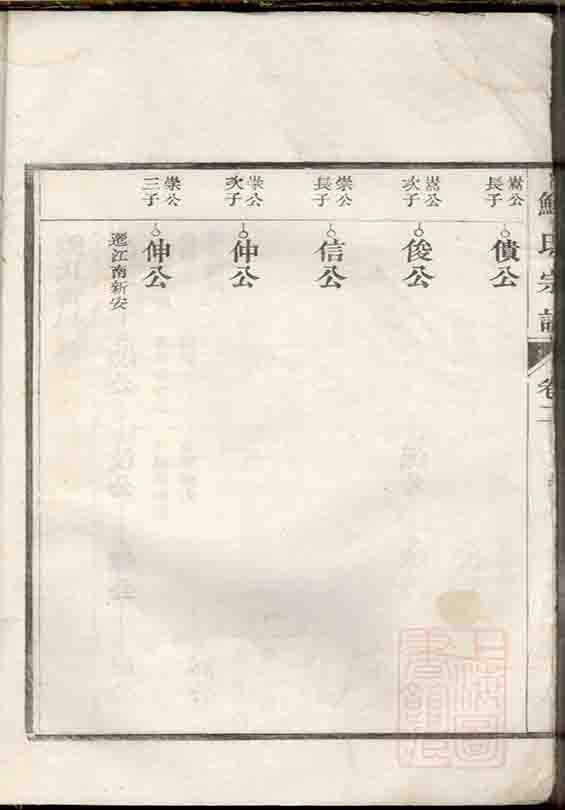 鮑氏宗譜
卷二
嵩公長子
僨公
嵩公次子
俊公
崇公長子
信公
崇公次子
仲公
崇公三子
伸公
遷江南新安
上海圖書館藏